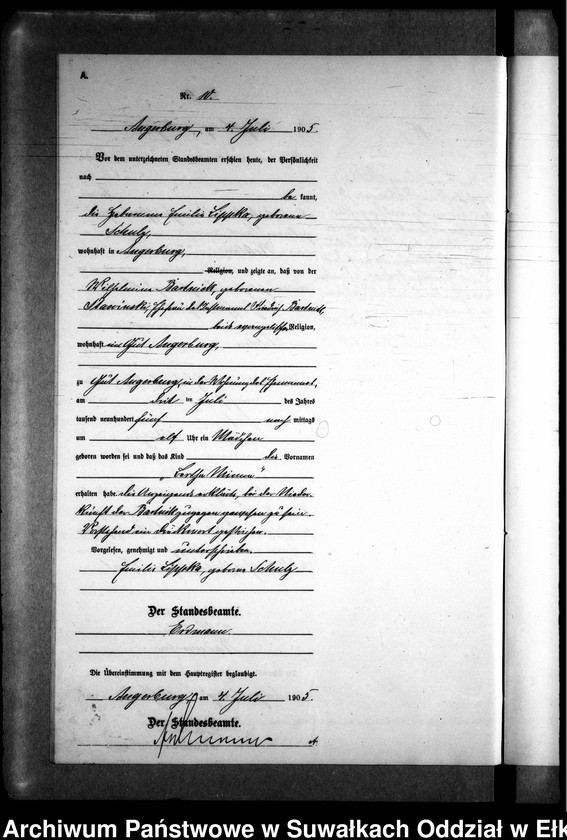 A.
Nr. 10.
Angerburg, am 4. Juli 1905.
Vor dem unterzeichneten Standesbeamten erschien heute, der Persönlichkeit
nach
be kannt,
die Hebamme Emilie Lippka, geborene
Schulz,
wohnhaft in Angerburg,
Religion, und zeigte an, daß von der
Wilhelmine Bartnick, geborenen
Slawinski, Ehefrau des Friedrich Bartnick,
beide evangelischer Religion,
wohnhaft in Gut Angerburg,
zu Gut Angerburg, in der Wohnung des Ehemannes,
am drit ten Juli des Jahres
tausend neunhundert fünf nach mittags
um elf Uhr ein Mädchen
geboren worden sei und daß das Kind die Vornamen
„Bertha Minna“
erhalten habe. Die Anzeigende erklärte, bei der Nieder-
kunft der Bartnick zugegen gewesen zu sein.
Vorstehend ein Druckwort gestrichen.
Vorgelesen, genehmigt und unterschrieben.
Emilie Lippka, geborene Schulz
Der Standesbeamte.
Erdmann.
Die Übereinstimmung mit dem Hauptregister beglaubigt.
Angerburg, am 4. Juli 1905.
Der Standesbeamte.
Erdmann
Archiwum Państwowe w Suwałkach Oddział w Ełk